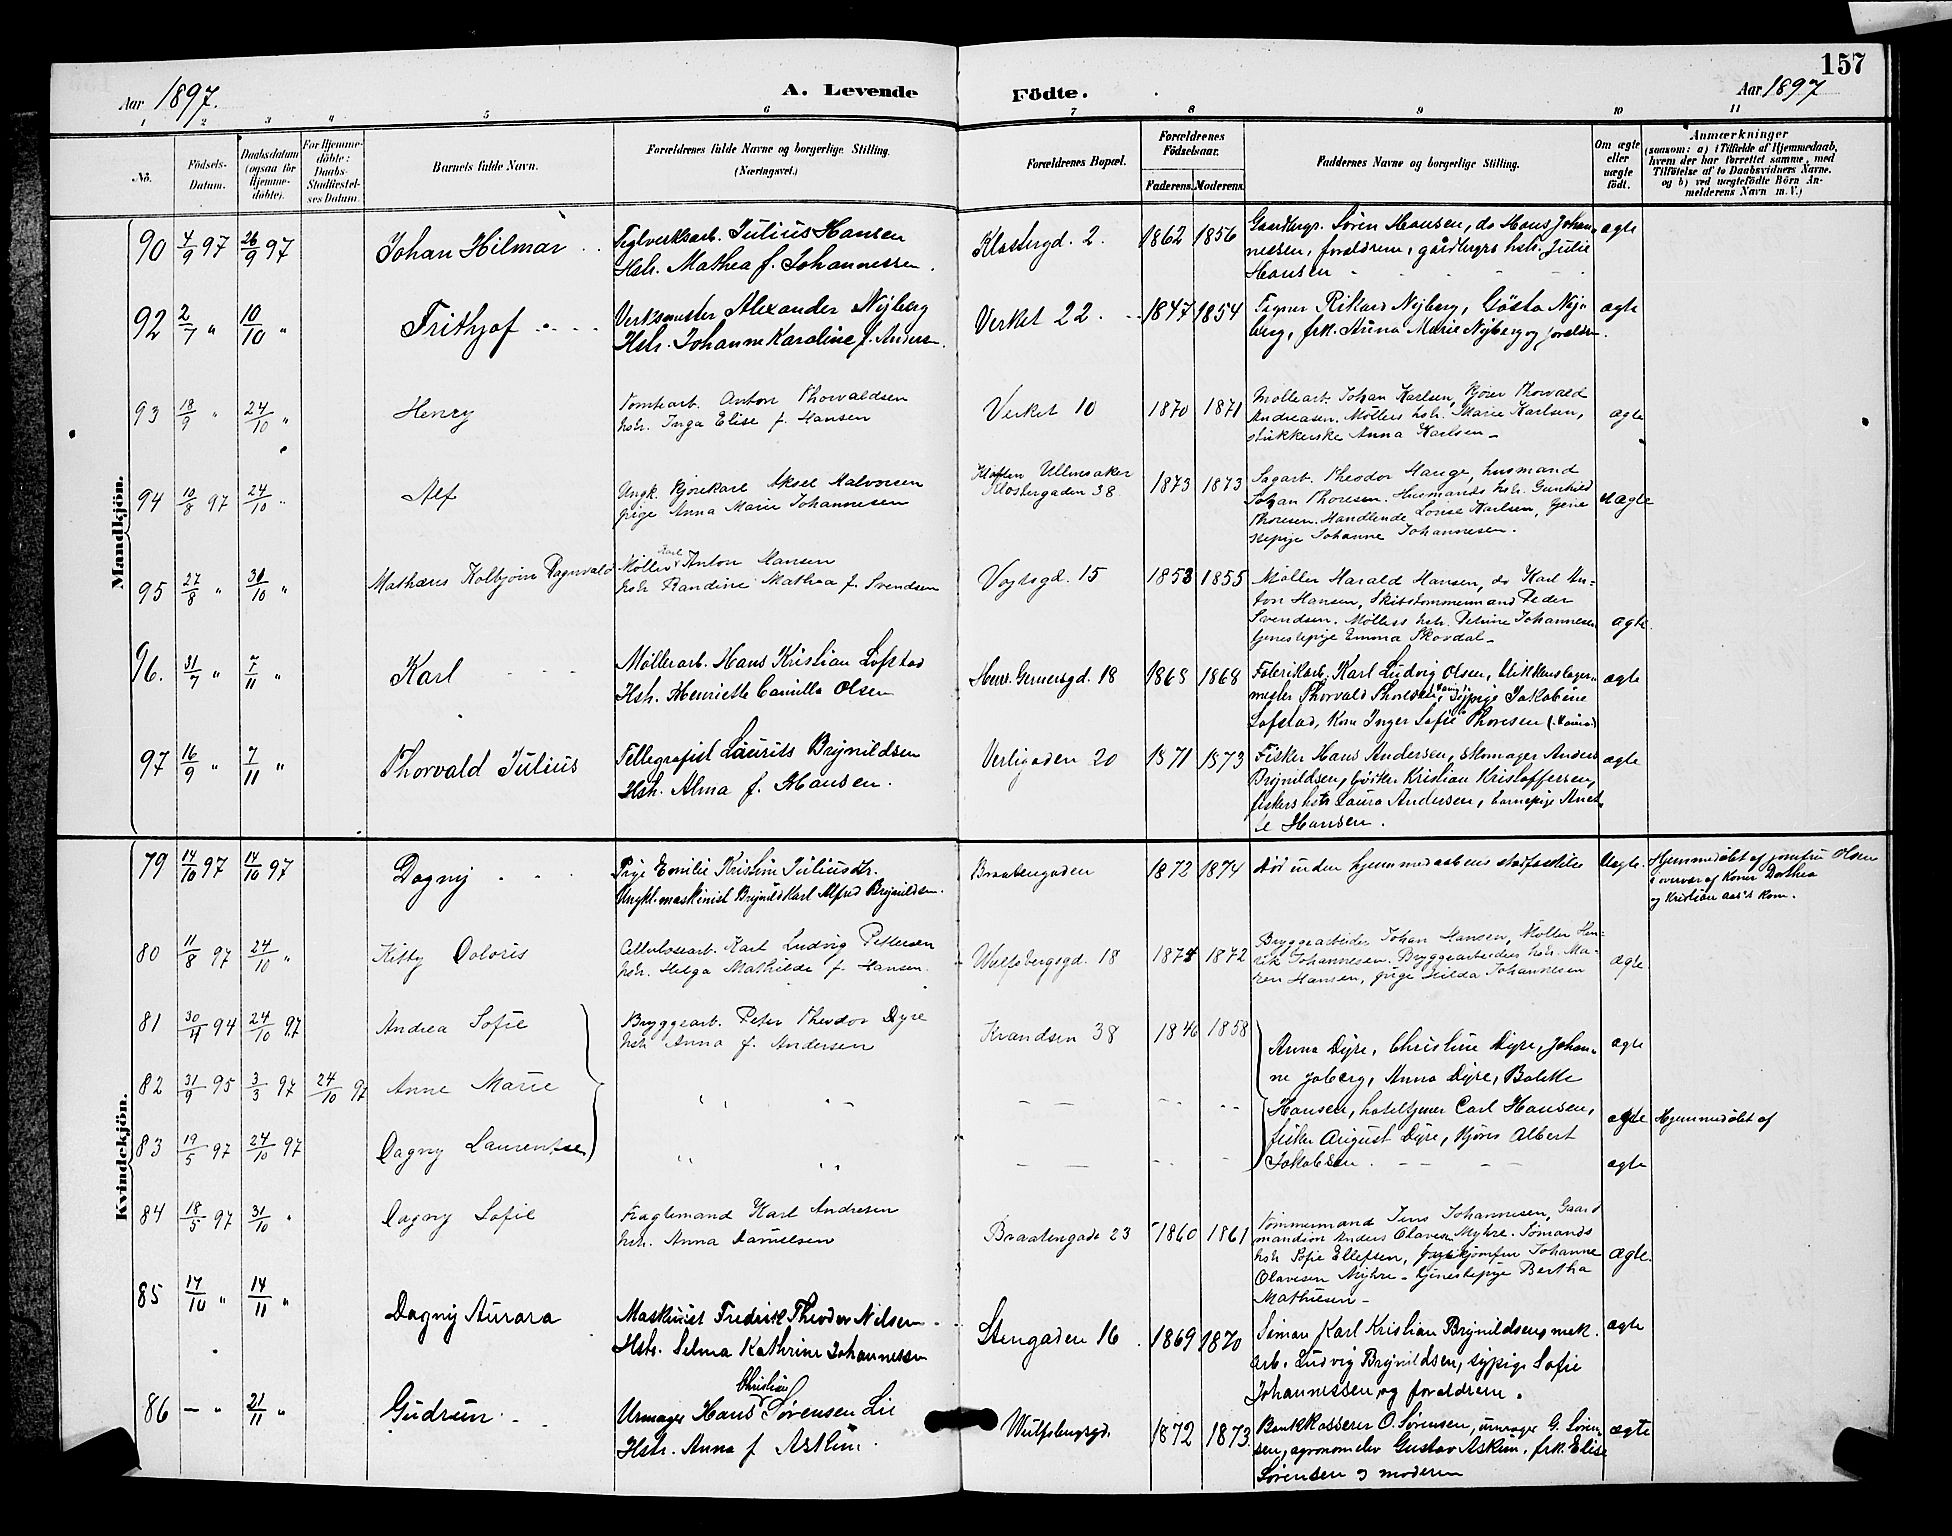 157
Aar 1897.
A. Levende Födte.
Aar 1897
1 2 3 4 5 6 7 8 9 10 11
No.
Födsels-Datum.
Daabsdatum (ogsaa for Hjemme-döbte).
For Hjemme-döbte: Daabs-Stadfæstel-ses Datum.
Barnets fulde Navn.
Forældrenes fulde Navne og borgerlige Stilling. (Næringsvei.)
Forældrenes Bopæl.
Forældrenes Födselsaar.
Faderens. Moderens.
Faddernes Navne og borgerlige Stilling.
Om ægte eller uægte födt.
Anmærkninger
(saasom: a) i Tilfælde af Hjemmedaab, hvem der har forrettet samme, med Tilföielse af to Daabsvidners Navne, og b) ved uægtefödte Börn An-melderens Navn m. V.)
Mandkjön.
90 4/9 97 26/9 97 Johan Hilmar
Teglverksarb. Julius Hansen
Hstr. Mathea f. Johannessen.
Klostergd. 2. 1862 1856
Gaardbrgr. Søren Hansen, do Hans Johan-
nessen, forældrene, gårdbrgrs hstr. Julie
Hansen
ægte
92 2/7 " 10/10 " Frithjof
Verksmester Alexander Nyberg
Hstr. Johanne Karoline f. Anders.
Verket 22. 1847 1854
Rikard Nyberg, Gösta Ny-
berg, frk. Anna Marie Nyberg og foreldr.
ægte
93 18/9 " 24/10 " Henry
Tomtarb. Anton Thorvaldsen
hstr. Inga Elise f. Hansen
Verket 10 1870 1871
Møllearb. Johan Karlsen, Kjører Thorvald
Andreasen. Møllers hstr. Marie Karlsen,
strikkerske Anna Karlsen_
ægte
94 10/8 97 24/10 " Alf
Ungk. Kjørekarl Aksel Halvorsen
pige Anna Marie Johannesen
Kløften Ullensaker
Klostergaden 38 1873 1873
Sagarb. Theodor Hauge, husmand
Johan Thoresen. Husmands hstr. Gunhild
Thoresen. Handlende Lonse Karlsen, tjene
stepige Johanne Johannesen.
uægte
95 27/8 " 31/10 " Mathæus Kolbjørn Dagnvald
Møller Karl Anton Hansen
hstr Randine Mathea f. Svendsen
Vogtsgd. 15 1853 1855
Møller Harald Hansen, do Karl An-
ton Hansen, Skibstømmermand Peder
Svendsen. Møllers hstr. Petrine Johannesen
tjenestepige Emma Skovdal_
ægte
96. 31/7 " 7/11 " Karl
Møllerarb. Hans Kristian Lofstad
Hstr. Henriette Camilla Olsen
Henr. Gernersgd. 18 1868 1868
Fabrikarb. Karl Ludvig Olsen, blikkenslager-
mester Thorvald Thoresen, sypige Jakobine
Lofstad, Kone Inger Sofie Thoresen
ægte
97 16/9 " 7/11 " Thorvald Julius
Tellegrafist Laurits Brynildsen
Hstr. Alma f. Hansen.
Verligaden 20 1871 1873
Fisker Hans Andersen, skomager Anders
Brynildsen, Kristian Kristoffersen,
fiskers hstr Laura Andersen, barnepige Anet-
te Hansen.
ægte
Kvindekjön.
79 14/10 97 14/10 97 Dagny
Pige Emilie Kristine Juliusdtr.
Ungkl. maskinist Brynild Karl Alfred Brynildsen.
Braatengaden 1872 1874
død uden hjemmedaabens stadfæstelse
Uægte.
Hjemmedøbt af jomfru Olsen
i overvær af Konen Dorthea
og Kristian Aas's Kone.
80 11/8 97 24/10 " Kitty Doloris
Cellulosearb. Karl Ludvig Pettersen
hstr. Helga Mathilde f. Hansen
Wulfsbergsgd. 18 1874 1872
Bryggearbeider Johan Hansen, Møller Hen-
rik Johannesen. Bryggearbeiders hstr. Ma-
ren Hansen, pige Hilda Johannesen
ægte
81 30/4 94 24/10 97 Andrea Sofie
Bryggearb. Peter Theodor Dyre
hstr Anna f. Andersen
Strandsen 38 1846 1858
Anna Dyre, Christine Dyre, Johan-
ne , Anna Dyre, Bolette
Hansen, hoteltjener Carl Hansen,
fisker August Dyre, Kjøres Albert
Jakobsen.
ægte
82 31/9 95 3/3 97 24/10 97 Anne Marie
ægte Hjemmedøbt af
83 19/5 97 24/10 97 Dagny Laurentse
ægte
84 18/5 97 31/10 " Dagny Sofie
Karl Andresen
hstr. Anna Danielsen
Braatengade 23 1860 1861
Tømmermand Jens Johannesen, Gaard
mandssøn Anders Olavesen Myhre. Sømands
hstr Sofie Ellefsen, jomfru Johanne
Olavesen Myhre_ tjenestepige Bertha
Mathiesen_
ægte
85 17/10 " 14/11 " Dagny Aurora
Maskinist Fredrik Theodor Nilsen
Hstr. Selma Kathrine Johannessen
Stengaden 16. 1869 1870
Søman Karl Kristian Brynildsen, mek.
arb. Ludvig Brynildsen, sypige Sofie
Johannessen og forældrene.
ægte
86 — " 21/11 " Gudrun
Urmager Hans Christian Sørensen Lie
Hstr. Anna f Askim.
Wulfsbergsgd. 1872 1873
Bankkasserer O. Sørensen, urmager G. Søren-
sen, agronomelev Gustav Askim, frk. Elise
Sørensen og moderen
ægte